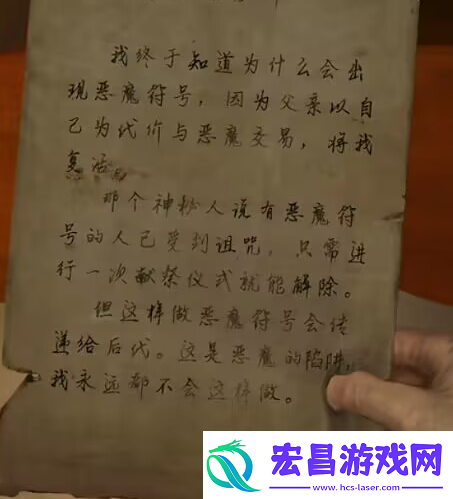 我终于知道为什么会出
现恶魔符号，因为父亲以自
己为代价与恶魔交易，将我
复活。
那个神秘人说有恶魔符
号的人已受到诅咒，只需进
行一次献祭仪式就能解除。
但这样做恶魔符号会传
递给后代。这是恶魔的陷阱，
我永远都不会这样做。
宏昌游戏网
www.hcs-laser.com